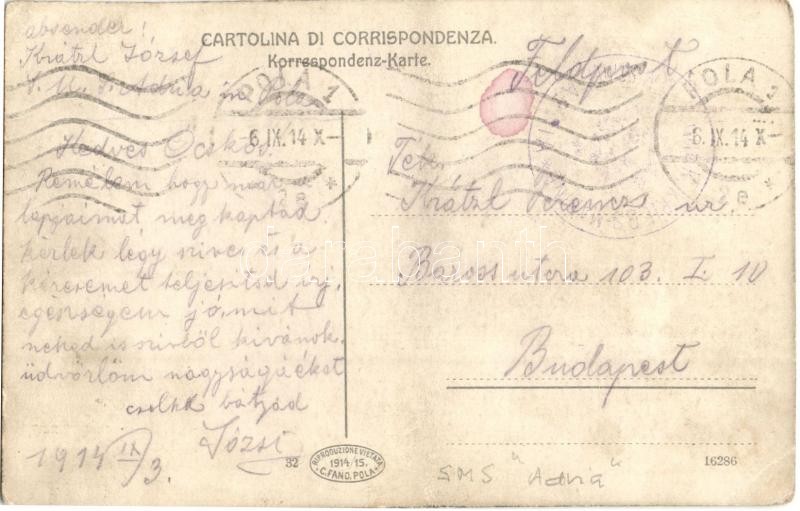 absender!
Krátzl József
S. M. S. Adria in Pola
CARTOLINA DI CORRISPONDENZA.
Korrespondenz-Karte.
Feldpost
POLA 1
6.IX.14 X
POLA 1
6.IX.14 X
Kedves Öcskös
Remélem hogy már a
lapjaimat meg kaptad
kérlek légy szives és a
kérésemet teljesitsd irj,
egésségem jó, mit
neked is szivből kivánok.
üdvözlöm nagyságáékat
csókk bátyád
Józsi
1914 IX/3.
Tek.
Krátzl Ferencz ur.
Baross utcza 103. I. 10
Budapest
32
RIPRODUZIONE VIETATA
1914/15.
C. FANO, POLA
SMS "Adria"
16286
darabanth